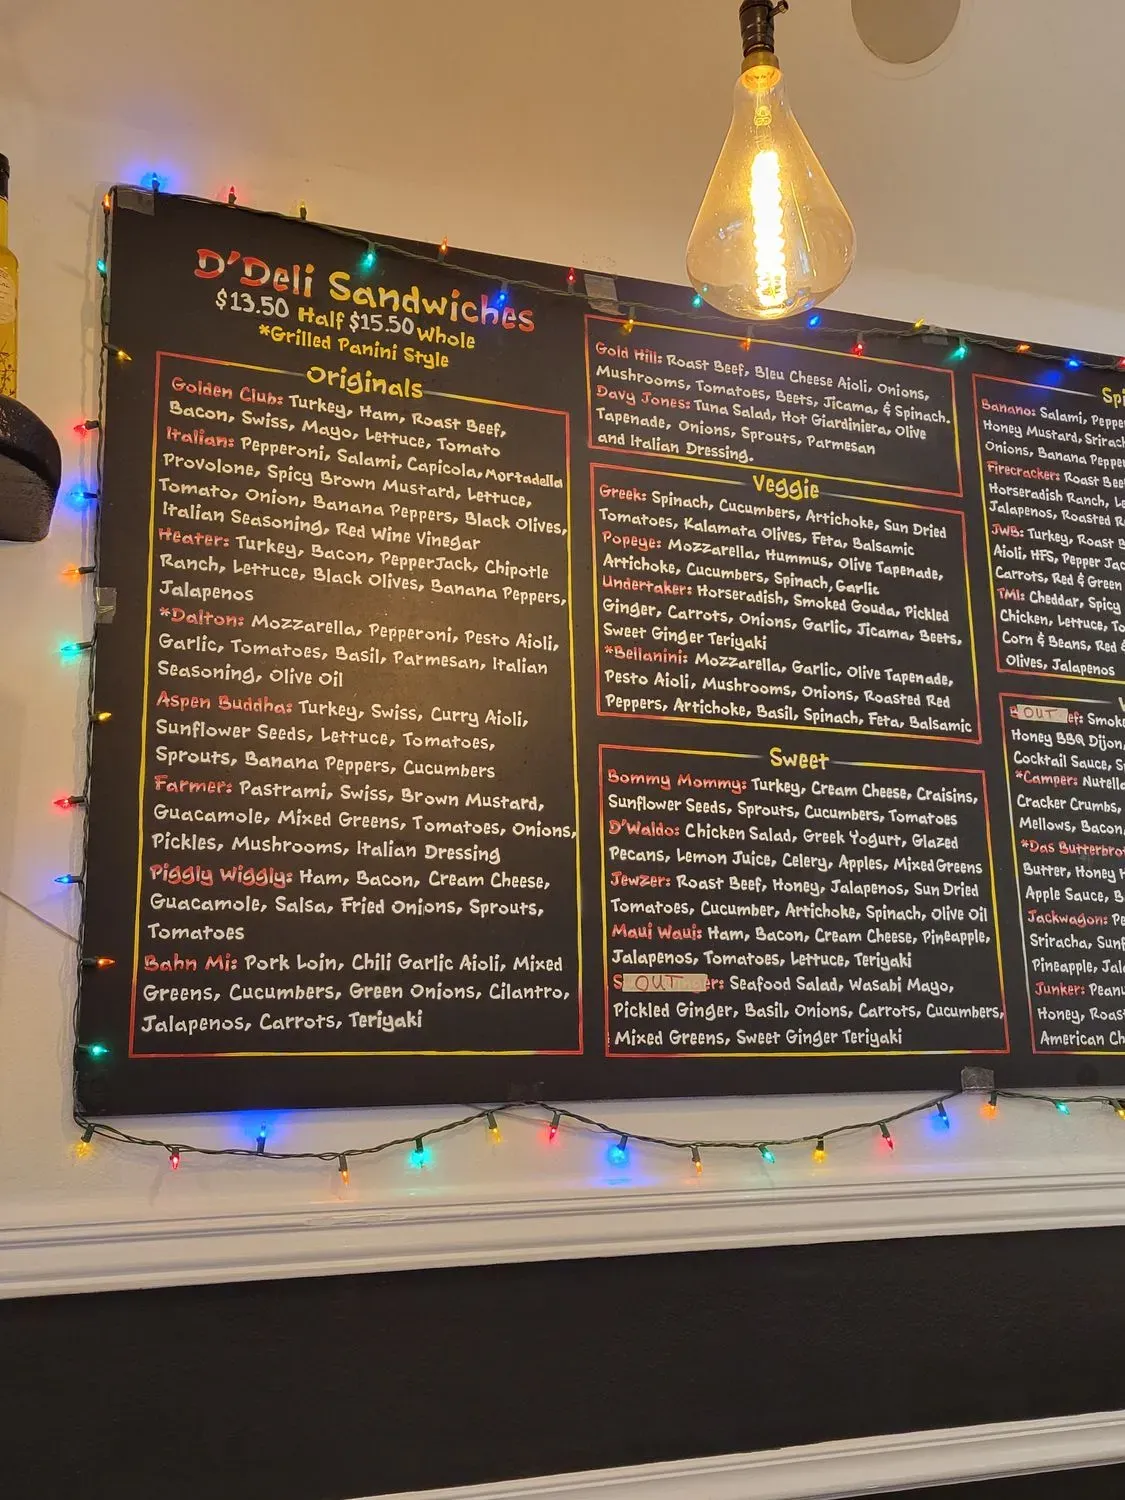 D'Deli Sandwiches
$13.50 Half $15.50 Whole
*Grilled Panini Style
Originals
Golden Club: Turkey, Ham, Roast Beef,
Bacon, Swiss, Mayo, Lettuce, Tomato
Italian: Pepperoni, Salami, Capicola, Mortadella
Provolone, Spicy Brown Mustard, Lettuce,
Tomato, Onion, Banana Peppers, Black Olives,
Italian Seasoning, Red Wine Vinegar
Heater: Turkey, Bacon, PepperJack, Chipotle
Ranch, Lettuce, Black Olives, Banana Peppers,
Jalapenos
*Dalton: Mozzarella, Pepperoni, Pesto Aioli,
Garlic, Tomatoes, Basil, Parmesan, Italian
Seasoning, Olive Oil
Aspen Buddha: Turkey, Swiss, Curry Aioli,
Sunflower Seeds, Lettuce, Tomatoes,
Sprouts, Banana Peppers, Cucumbers
Farmer: Pastrami, Swiss, Brown Mustard,
Guacamole, Mixed Greens, Tomatoes, Onions,
Pickles, Mushrooms, Italian Dressing
Piggly Wiggly: Ham, Bacon, Cream Cheese,
Guacamole, Salsa, Fried Onions, Sprouts,
Tomatoes
Bahn Mi: Pork Loin, Chili Garlic Aioli, Mixed
Greens, Cucumbers, Green Onions, Cilantro,
Jalapenos, Carrots, Teriyaki
Gold Hill: Roast Beef, Bleu Cheese Aioli, Onions,
Mushrooms, Tomatoes, Beets, Jicama, & Spinach.
Davy Jones: Tuna Salad, Hot Giardiniera, Olive
Tapenade, Onions, Sprouts, Parmesan
and Italian Dressing.
Veggie
Greek: Spinach, Cucumbers, Artichoke, Sun Dried
Tomatoes, Kalamata Olives, Feta, Balsamic
Popeye: Mozzarella, Hummus, Olive Tapenade,
Artichoke, Cucumbers, Spinach, Garlic
Undertaker: Horseradish, Smoked Gouda, Pickled
Ginger, Carrots, Onions, Garlic, Jicama, Beets,
Sweet Ginger Teriyaki
*Bellanini: Mozzarella, Garlic, Olive Tapenade,
Pesto Aioli, Mushrooms, Onions, Roasted Red
Peppers, Artichoke, Basil, Spinach, Feta, Balsamic
Sweet
Bommy Mommy: Turkey, Cream Cheese, Craisins,
Sunflower Seeds, Sprouts, Cucumbers, Tomatoes
D'Waldo: Chicken Salad, Greek Yogurt, Glazed
Pecans, Lemon Juice, Celery, Apples, Mixed Greens
Jewzer: Roast Beef, Honey, Jalapenos, Sun Dried
Tomatoes, Cucumber, Artichoke, Spinach, Olive Oil
Maui Waui: Ham, Bacon, Cream Cheese, Pineapple,
Jalapenos, Tomatoes, Lettuce, Teriyaki
OUT Seafood Salad, Wasabi Mayo,
Pickled Ginger, Basil, Onions, Carrots, Cucumbers,
Mixed Greens, Sweet Ginger Teriyaki
Banano: Salami, Peppe
Honey Mustard, Srirac
Onions, Banana Peppe
Firecracker: Roast Bee
Horseradish Ranch, Le
Jalapenos, Roasted R
JWB: Turkey, Roast B
Aioli, HFS, Pepper Jac
Carrots, Red & Green
TMI: Cheddar, Spicy
Chicken, Lettuce, To
Corn & Beans, Red &
Olives, Jalapenos
OUT Smoke
Honey BBQ Dijon,
Cocktail Sauce, S
*Camper: Nutella
Cracker Crumbs,
Mellows, Bacon,
*Das Butterbro
Butter, Honey H
Apple Sauce, B
Jackwagon: Pe
Sriracha, Sunf
Pineapple, Jal
Junker: Peanu
Honey, Roas
American Ch